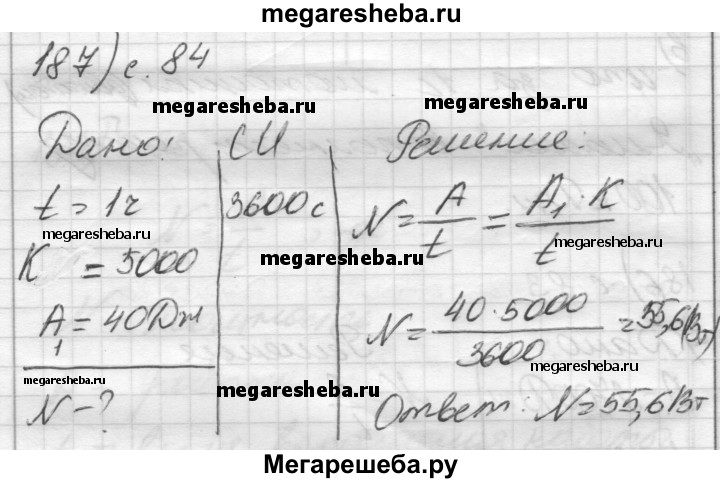 megaresheba.ru
187) с. 84
megaresheba.ru
megaresheba.ru
Дано: СИ Решение:
t = 1 ч 3600 с N = A/t = A₁·K/t
megaresheba.ru
megaresheba.ru
megaresheba.ru
K = 5000
A₁ = 40 Дж N = 40·5000/3600 = 55,6 (Вт)
megaresheba.ru
megaresheba.ru
megaresheba.ru
N - ? Ответ: N = 55,6 Вт
megaresheba.ru
Мегарешеба.ру